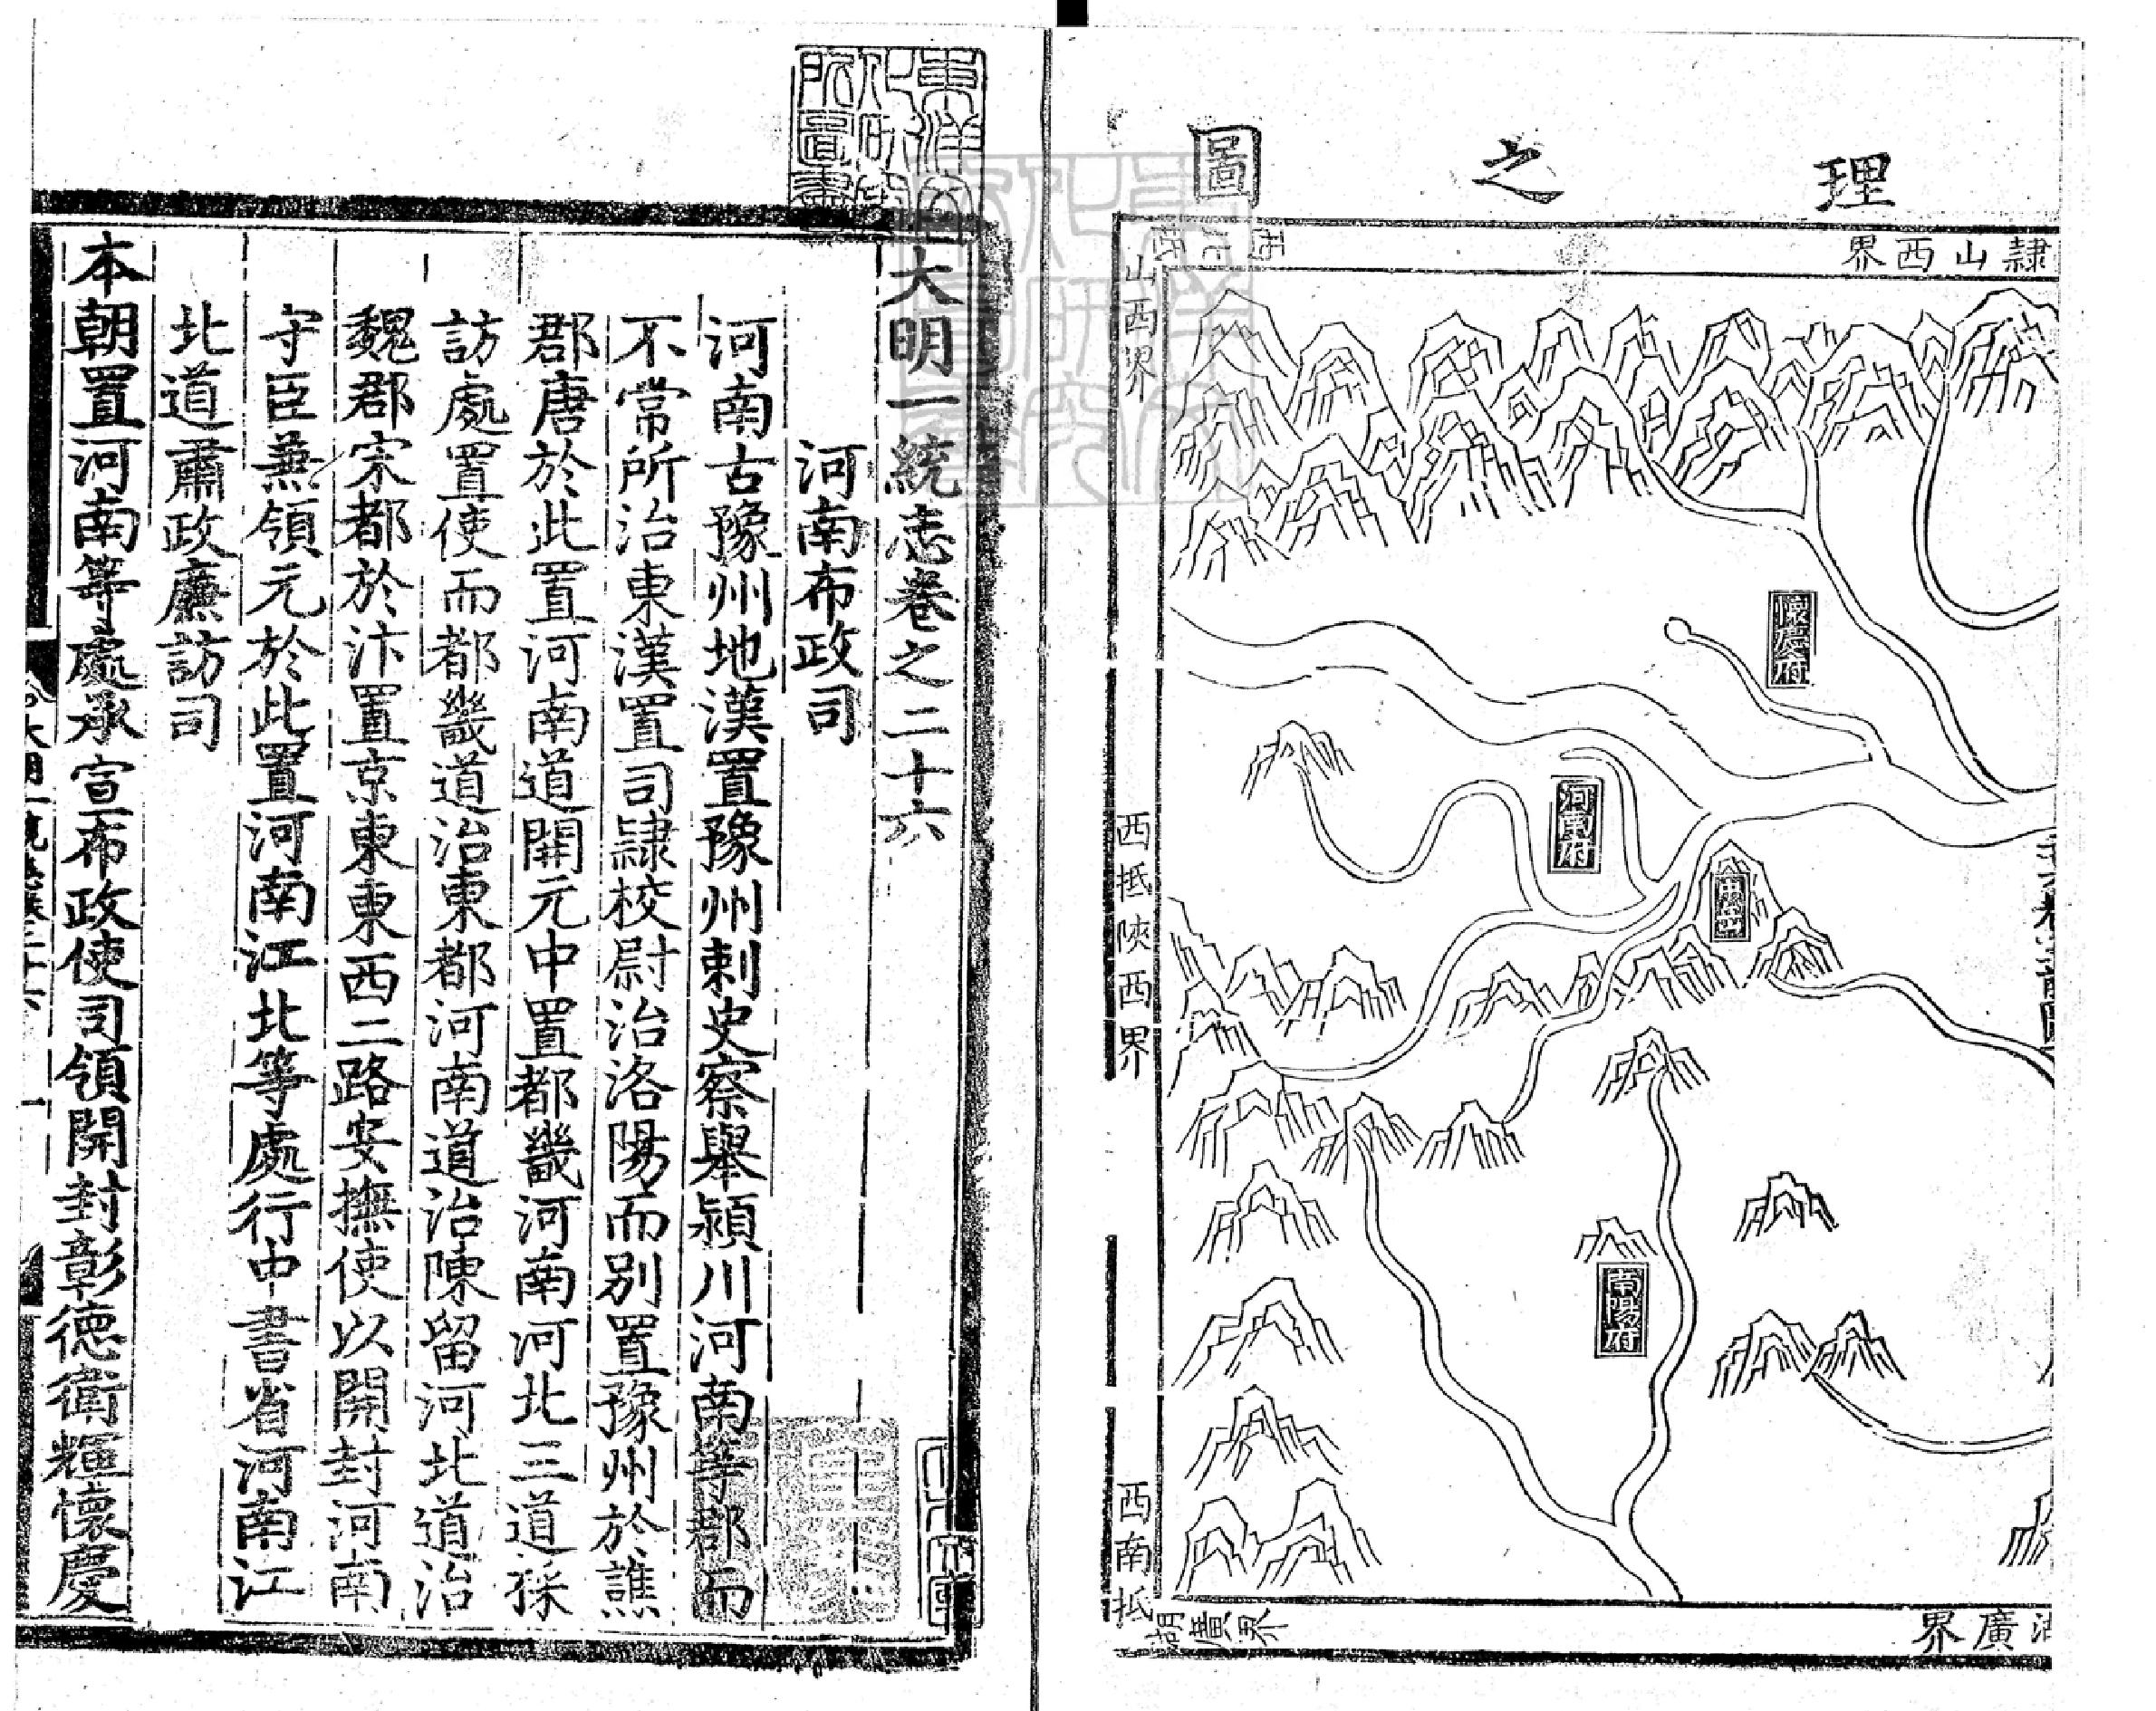 理之圖
隸山西界
山西界
西抵陝西界
西南抵
湖廣界
廣界
懷慶府
河南府
南陽府
大明一統志卷之二十六
河南布政司
河南古豫州地漢置豫州刺史察舉潁川河南等郡而
不常所治東漢置司隸校尉治洛陽而別置豫州於譙
郡唐於此置河南道開元中置都畿河南河北三道採
訪處置使而都畿道治東都河南道治陳留河北道治
魏郡宋都於汴置京東東西二路安撫使以開封河南
守臣兼領元於此置河南江北等處行中書省河南江
北道肅政廉訪司
本朝置河南等處承宣布政使司領開封彰德衛輝懷慶